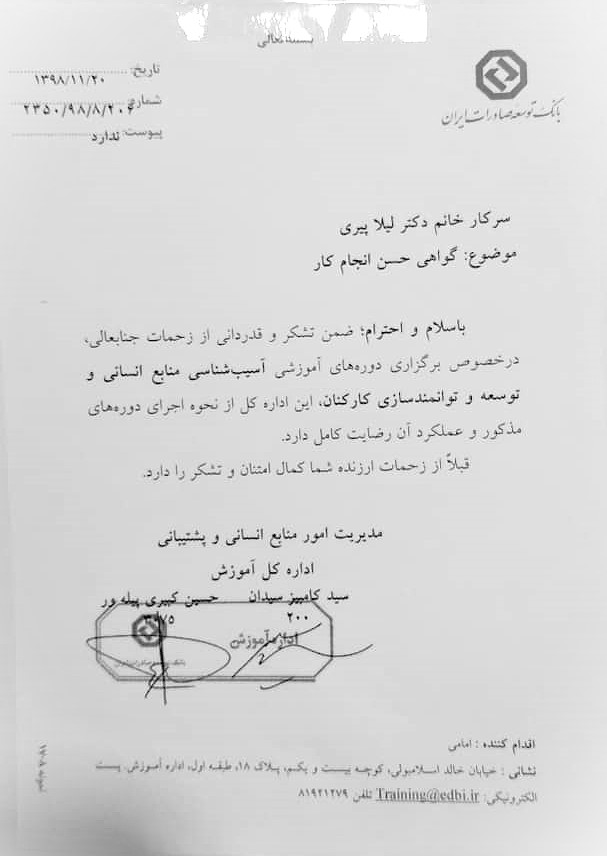 بسمه تعالی
تاریخ: ۱۳۹۸/۱۱/۲۰
شماره: ۲۳۵۰/۹۸/۸/۲۰۶
پیوست: ندارد
بانک توسعه صادرات ایران
سرکار خانم دکتر لیلا پیری
موضوع: گواهی حسن انجام کار
باسلام و احترام؛ ضمن تشکر و قدردانی از زحمات جنابعالی،
درخصوص برگزاری دوره‌های آموزشی آسیب‌شناسی منابع انسانی و
توسعه و توانمندسازی کارکنان، این اداره کل از نحوه اجرای دوره‌های
مذکور و عملکرد آن رضایت کامل دارد.
قبلاً از زحمات ارزنده شما کمال امتنان و تشکر را دارد.
مدیریت امور منابع انسانی و پشتیبانی
اداره کل آموزش
سید کامبیز سیدان حسین کبیری پیله ور
۲۰۰
اداره آموزش
بانک توسعه صادرات ایران
اقدام کننده : امامی
نشانی : خیابان خالد اسلامبولی، کوچه بیست و یکم، پلاک ۱۸، طبقه اول، اداره آموزش. پست
الکترونیکی: Training@edbi.ir تلفن ۸۱۹۲۱۲۷۹
نمونه ۱۷۰۸